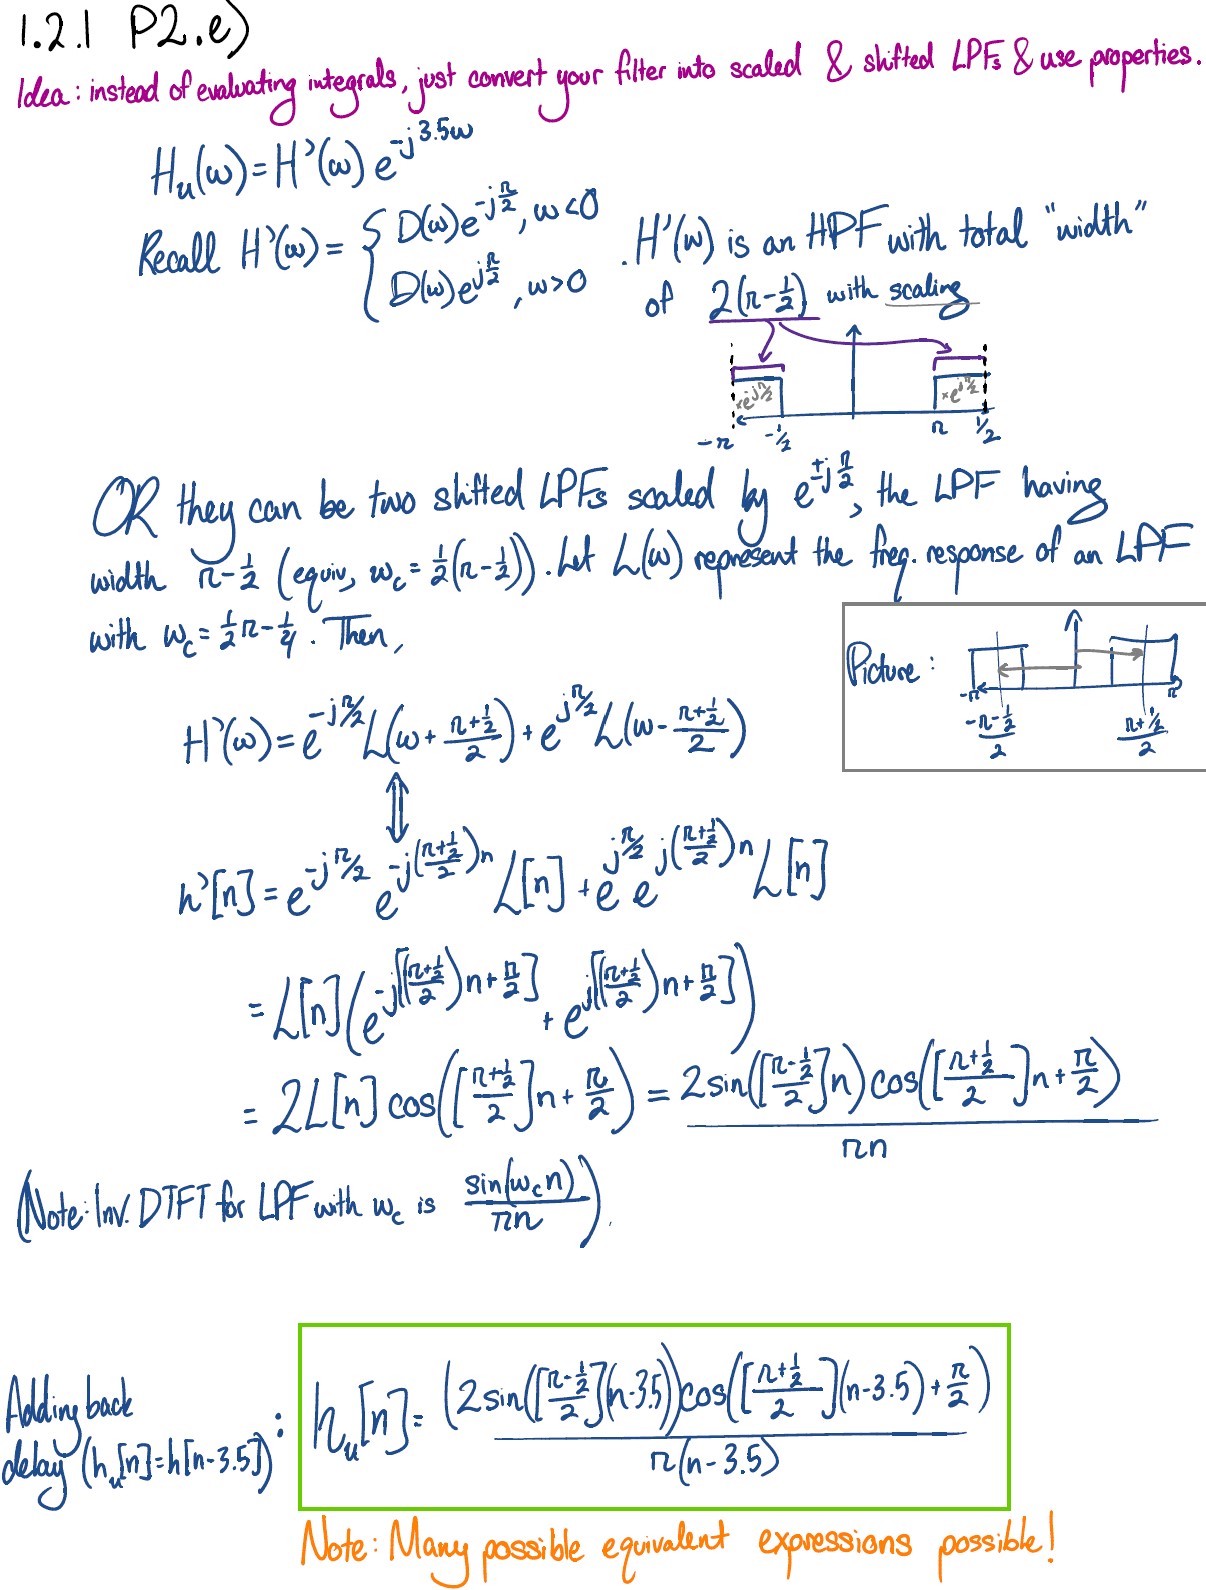 1.2.1 P2.e)
Idea: instead of evaluating integrals, just convert your filter into scaled & shifted LPFs & use properties.
Hᵤ(ω)=H'(ω) e^{-j3.5ω}
Recall H'(ω)= { D(ω)e^{-jπ/2}, ω<0
D(ω)e^{jπ/2}, ω>0
. H'(ω) is an HPF with total "width"
of 2(π-1/2) with scaling
×e^{-jπ/2} ×e^{jπ/2}
-π -1/2 π 1/2
OR they can be two shifted LPFs scaled by e^{±jπ/2}, the LPF having
width π-1/2 (equiv, ω_c=1/2(π-1/2)). Let L(ω) represent the freq. response of an LPF
with ω_c=1/2π-1/4. Then,
Picture:
-π π
(-π-1/2)/2 (π+1/2)/2
H'(ω)=e^{-jπ/2}L(ω+(π+1/2)/2)+e^{jπ/2}L(ω-(π+1/2)/2)
⇕
h'[n]=e^{-jπ/2} e^{-j((π+1/2)/2)n} L[n]+e^{jπ/2} e^{j((π+1/2)/2)n} L[n]
=L[n](e^{-j[((π+1/2)/2)n+π/2]}+e^{j[((π+1/2)/2)n+π/2]})
=2L[n] cos([(π+1/2)/2]n+π/2) = 2sin([(π-1/2)/2]n)cos([(π+1/2)/2]n+π/2) / πn
(Note: Inv. DTFT for LPF with ω_c is sin(ω_c n)/πn).
Adding back
delay (hᵤ[n]=h[n-3.5]):
hᵤ[n]= (2sin([(π-1/2)/2](n-3.5))cos([(π+1/2)/2](n-3.5)+π/2) / π(n-3.5)
Note: Many possible equivalent expressions possible!